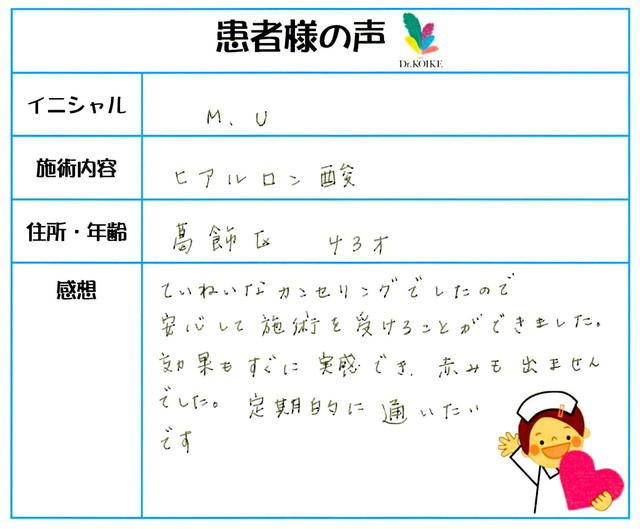 患者様の声
Dr.KOIKE
イニシャル
M、U
施術内容
ヒアルロン酸
住所・年齢
葛飾区 43才
感想
ていねいなカンセリングでしたので
安心して施術を受けることができました。
効果もすぐに実感でき、赤みも出ません
でした。定期的に通いたい
です